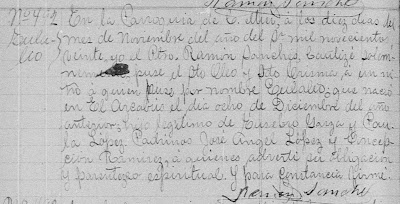 Ramón Sanches
No 4 2 En la Parroquia de C. Mier, a los diez dias
del mes de Noviembre del año del Sr. mil novecientos
veinte, yo el Pbro. Ramón Sanches, bautizé solem
nemente puse el Sto Oleo y Sto Crisma, a un ni
ño á quien puse por nombre Eulalio, que nació
en El Azcabús el dia ocho de Diciembre del año
anterior; hijo legítimo de Eusebio Garza y Pau
la López. Padrinos José Angel López y Concep
ción Ramirez, á quienes advertí su obligacion
y parentezco espiritual. Y para constancia firmé
Ramón Sanches